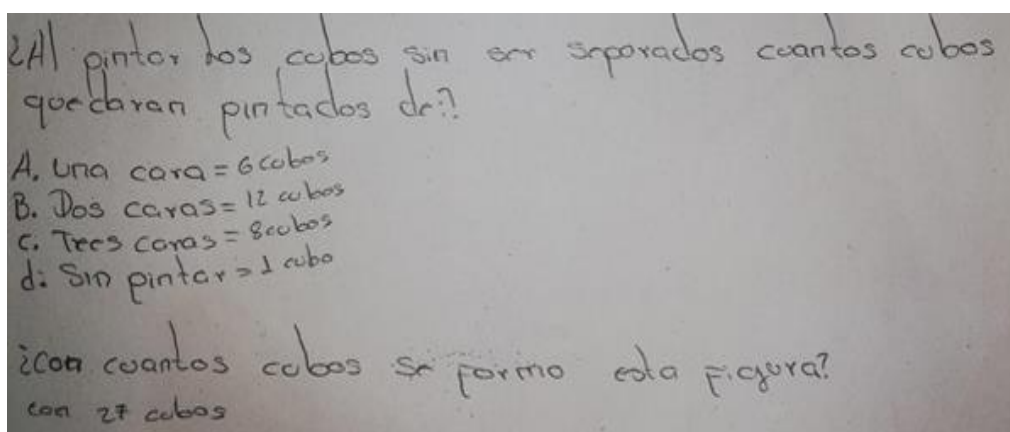 ¿Al pintar los cubos sin ser separados cuantos cubos
quedaran pintados de:?
A. Una cara = 6 cubos
B. Dos caras = 12 cubos
C. Trees caras = 8 cubos
d: Sin pintar = 1 cubo
¿Con cuantos cubos se formo esta figura?
con 27 cubos